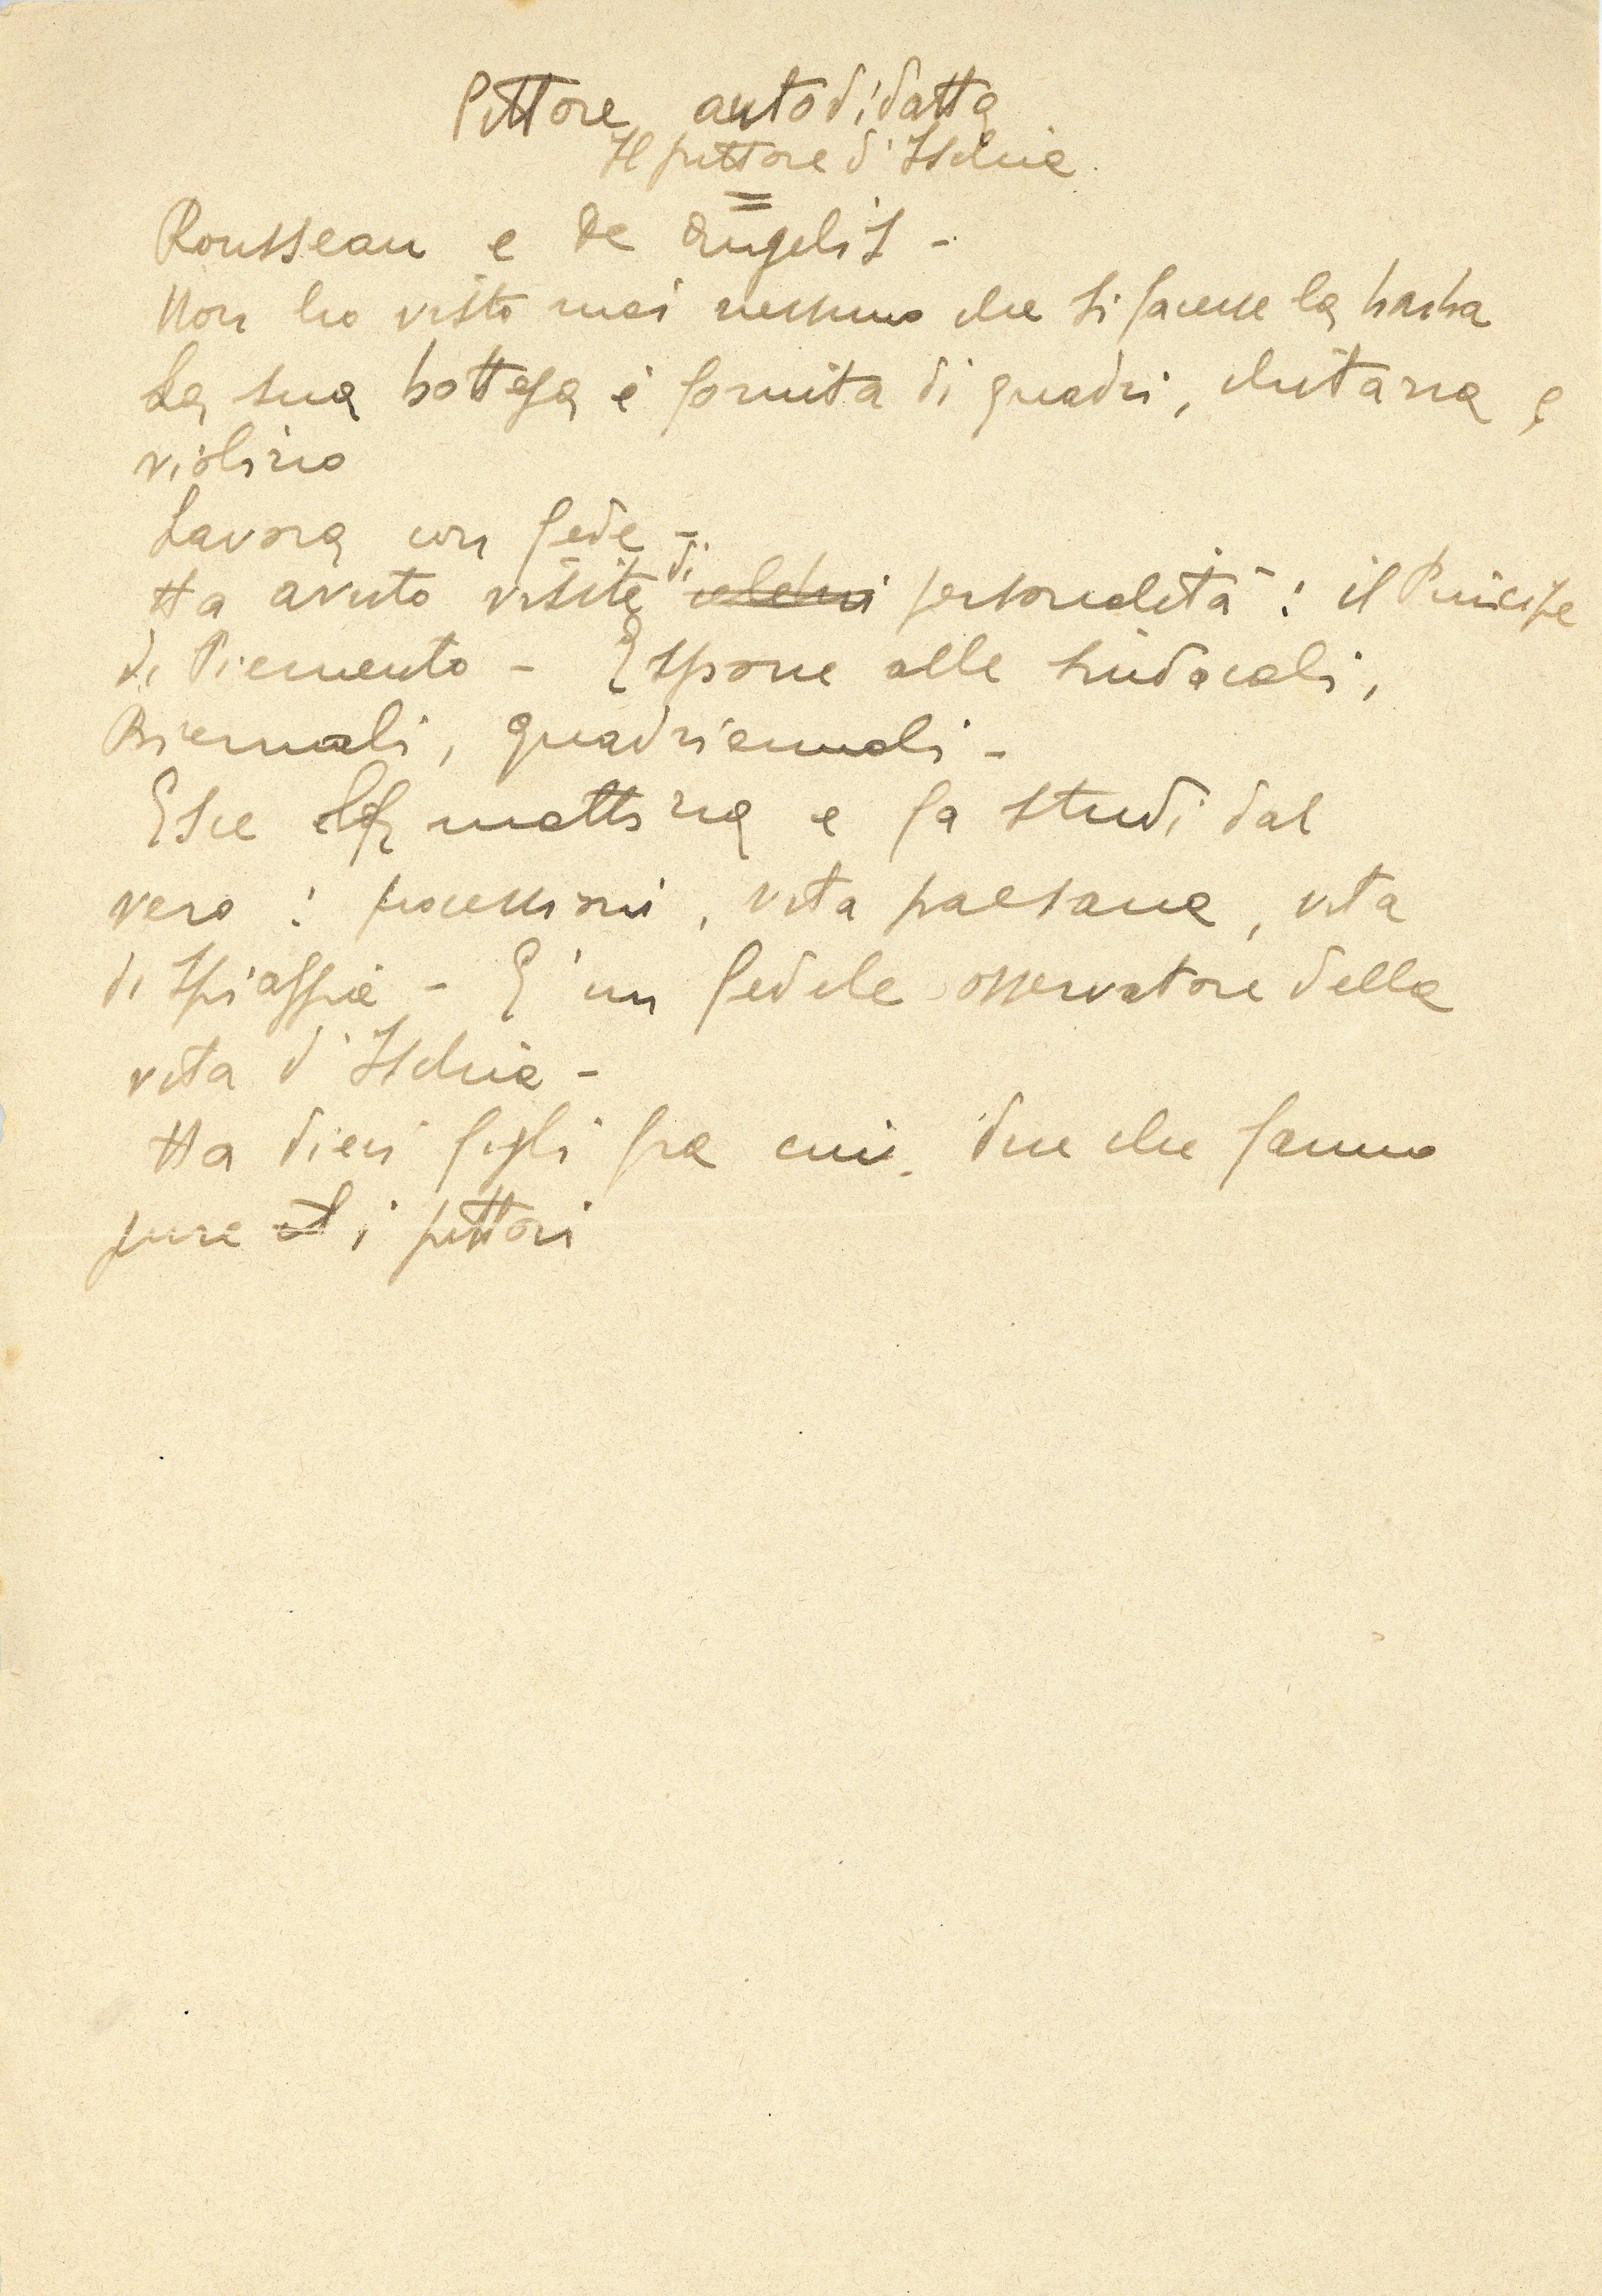 Pittore autodidatta
Il pittore d'Ischia.
Rousseau e De Angelis -
Non ho visto mai nessuno che si facesse la barba
La sua bottega è fornita di quadri, chitarra e
violino
Lavora con fede -
Ha avuto visite di celebri personalità: il Principe
di Piemonte - Espone alle sindacali,
Biennali, quadriennali -
Esce la mattina e fa studi dal
vero: processioni, vita paesana, vita
di spiaggia - E' un fedele osservatore della
vita d'Ischia -
Ha dieci figli fra cui due che fanno
pure i pittori